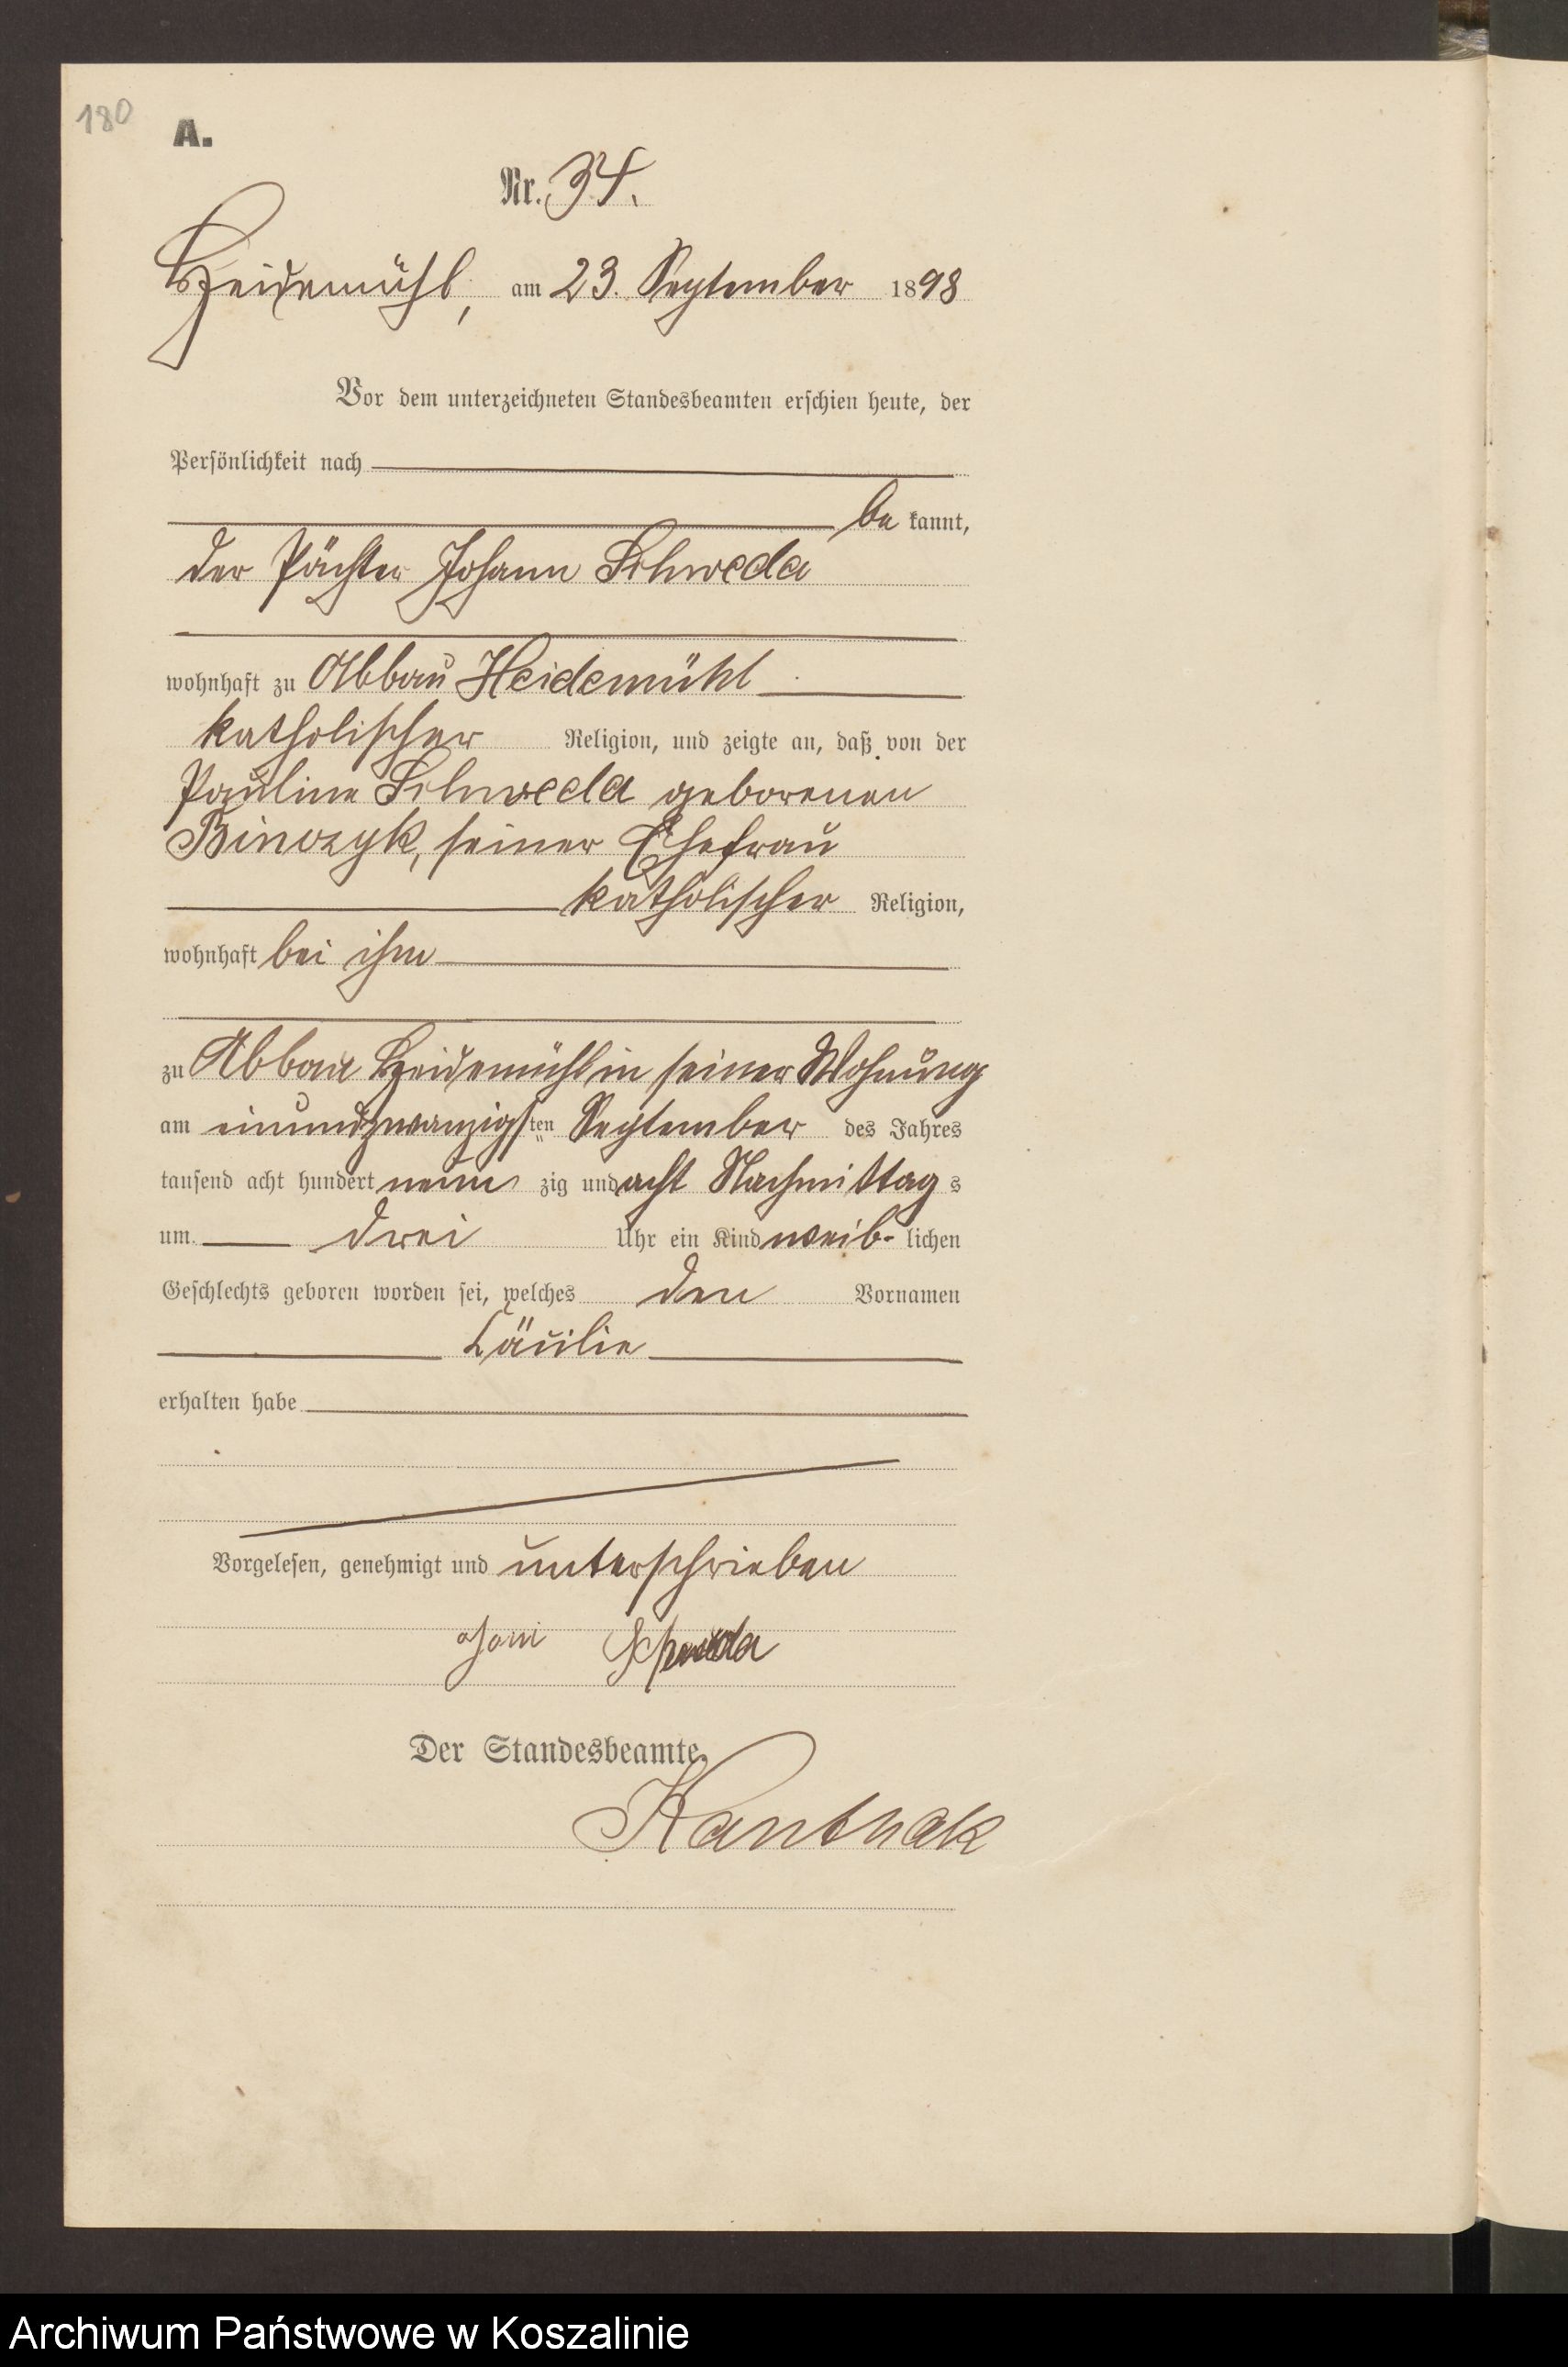 180
A.
Nr. 34.
Heidemühl, am 23. September 1898
Vor dem unterzeichneten Standesbeamten erschien heute, der
Persönlichkeit nach
be kannt,
der Pächter Johann Schweda
wohnhaft zu Abbau Heidemühl
katholischer Religion, und zeigte an, daß von der
Pauline Schweda geborenen
Binczyk, seiner Ehefrau
katholischer Religion,
wohnhaft bei ihm
zu Abbau Heidemühl in seiner Wohnung
am einundzwanzigsten September des Jahres
tausend acht hundert neun zig und acht Nachmittag s
um drei Uhr ein Kind weib- lichen
Geschlechts geboren worden sei, welches den Vornamen
Cäcilie
erhalten habe
Vorgelesen, genehmigt und unterschrieben
Schweda
Der Standesbeamte.
Kanthak
Archiwum Państwowe w Koszalinie